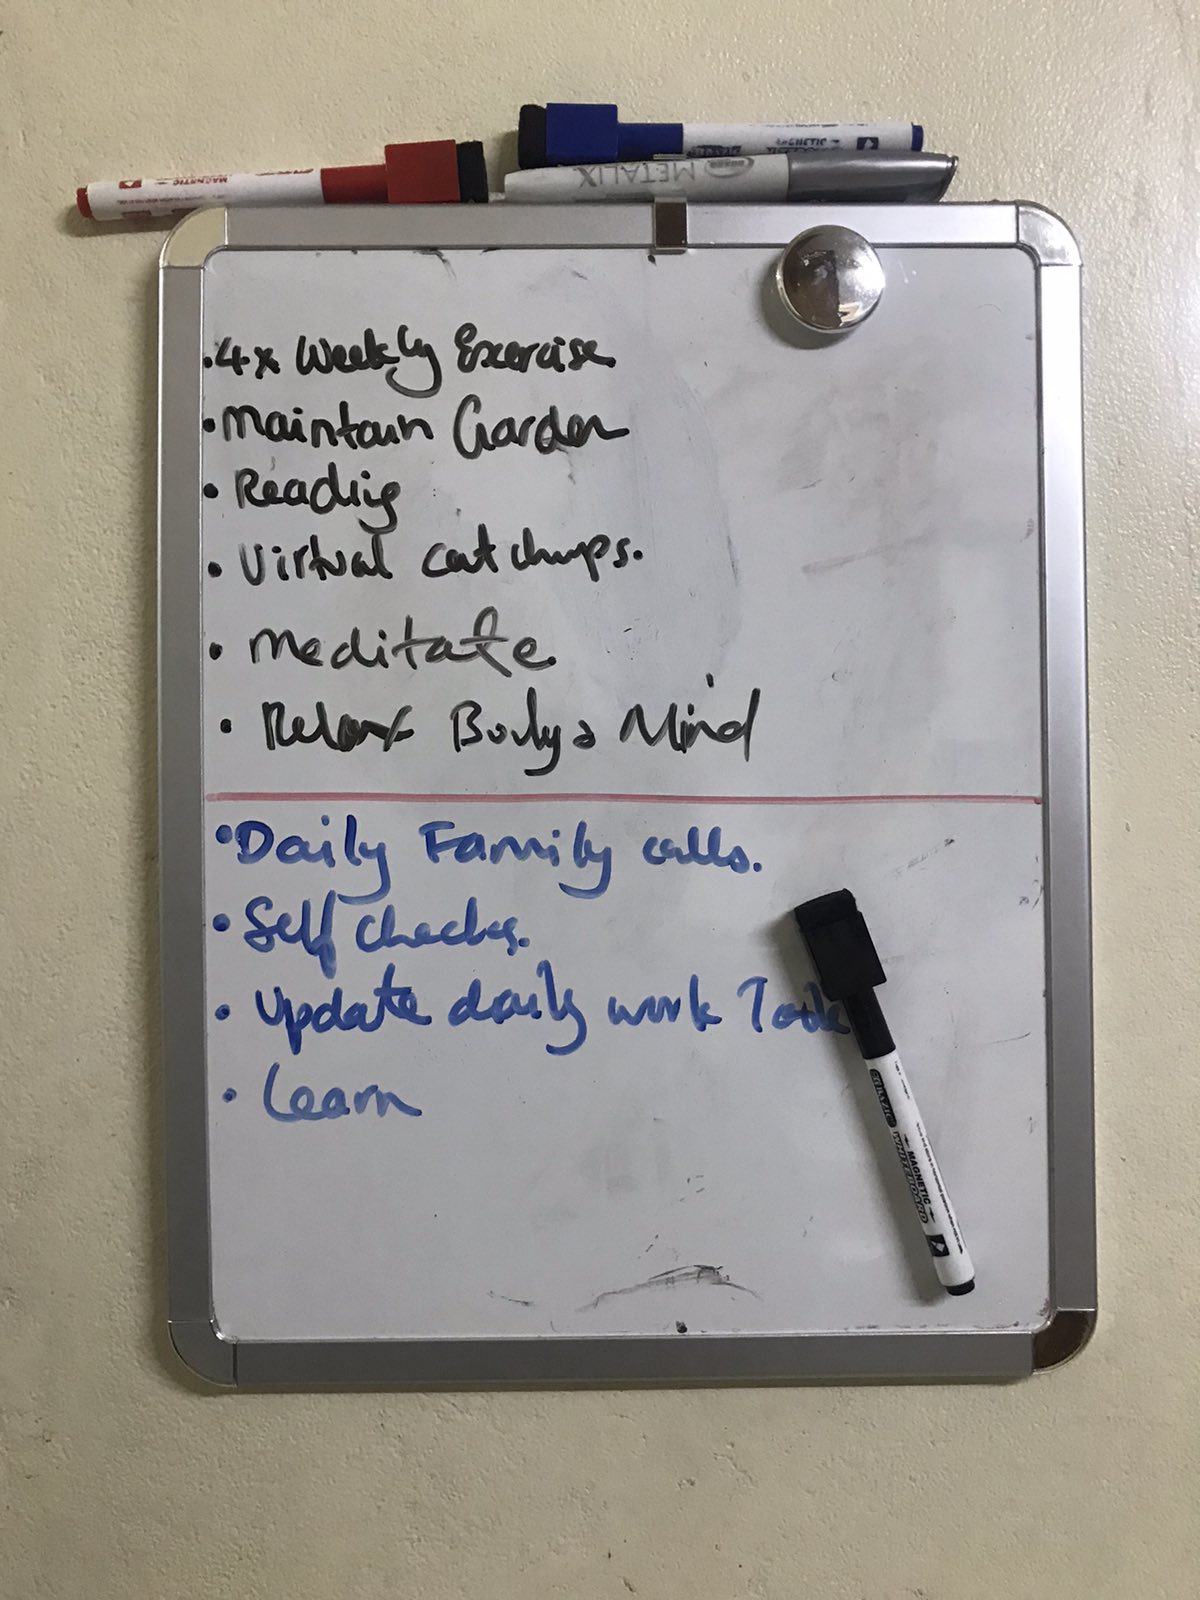 METALIX
• 4x Weekly Exercise
• Maintain Garden
• Reading
• Virtual catchups.
• Meditate
• Relax Body & Mind
• Daily Family calls.
• Self checks.
• Update daily work
• Learn
MAGNETIC
WHITEBOARD